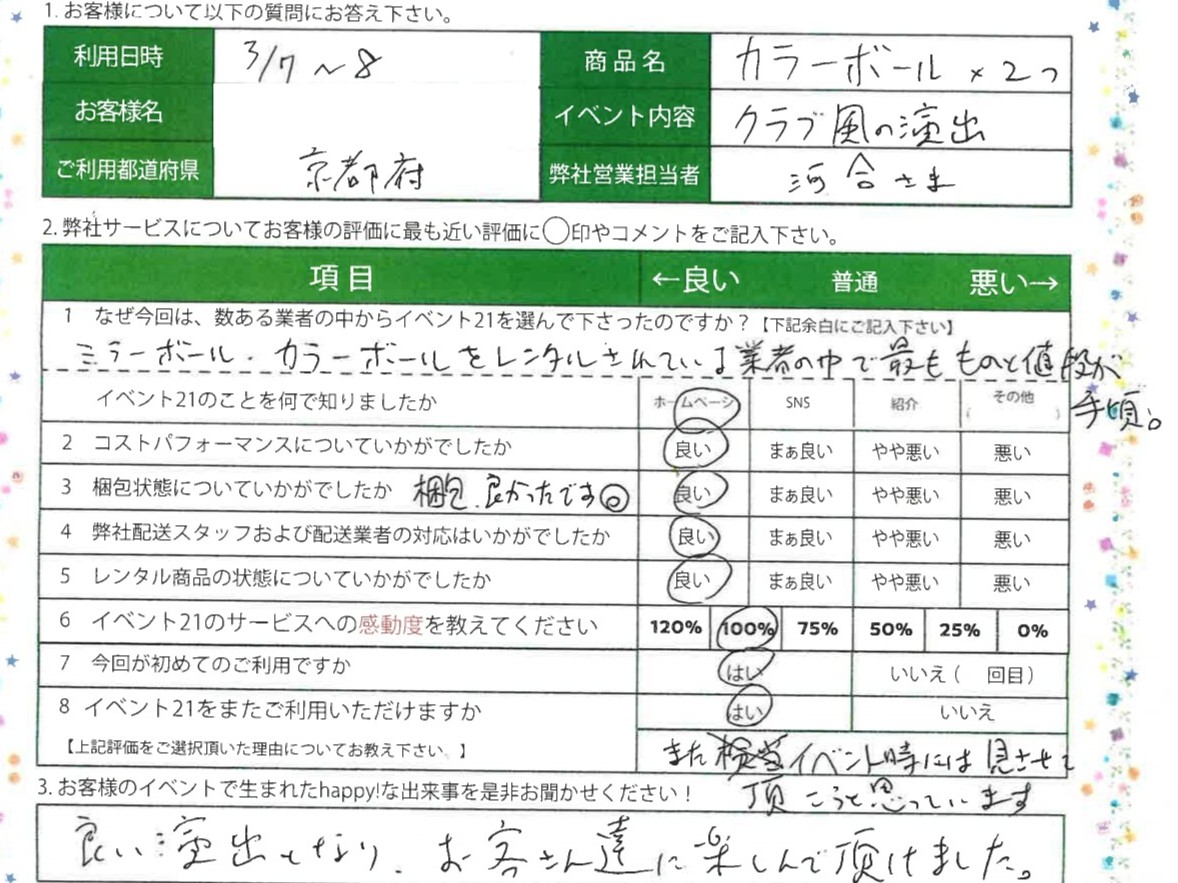 1. お客様について以下の質問にお答え下さい。
利用日時 3/7 ～ 8 商品名 カラーボール × 2つ
お客様名 イベント内容 クラブ風の演出
ご利用都道府県 京都府 弊社営業担当者 河合さま
2. 弊社サービスについてお客様の評価に最も近い評価に◯印やコメントをご記入下さい。
項目 ←良い 普通 悪い→
1 なぜ今回は、数ある業者の中からイベント21を選んで下さったのですか？【下記余白にご記入下さい】
ミラーボール・カラーボールをレンタルされている業者の中で最もものと値段が
手頃。
イベント21のことを何で知りましたか ホームページ SNS 紹介 その他( )
2 コストパフォーマンスについていかがでしたか 良い まぁ良い やや悪い 悪い
3 梱包状態についていかがでしたか 梱包、良かったです◎ 良い まぁ良い やや悪い 悪い
4 弊社配送スタッフおよび配送業者の対応はいかがでしたか 良い まぁ良い やや悪い 悪い
5 レンタル商品の状態についていかがでしたか 良い まぁ良い やや悪い 悪い
6 イベント21のサービスへの感動度を教えてください 120% 100% 75% 50% 25% 0%
7 今回が初めてのご利用ですか はい いいえ ( 回目)
8 イベント21をまたご利用いただけますか はい いいえ
【上記評価をご選択頂いた理由についてお教え下さい。】 また イベント時には見させて
頂こうと思っています
3. お客様のイベントで生まれたhappy!な出来事を是非お聞かせください！
良い演出となり、お客さん達に楽しんで頂けました。